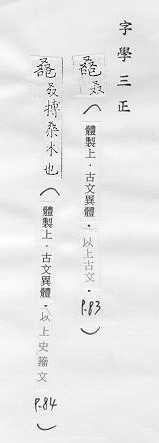 字學三正
叒（體製上．古文異體．以上古文．P.83）
叒搏桒木也（體製上．古文異體．以上史籀文P.84）